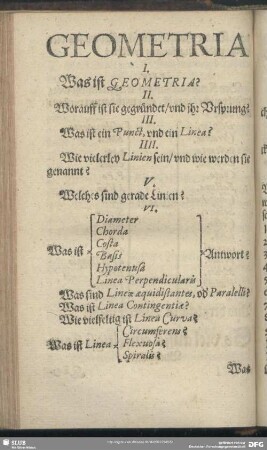 GEOMETRIA
I.
Was ist GEOMETRIA?
II.
Worauff ist sie gegründet/vnd jhr Vrsprung?
III.
Was ist ein Punct, vnd ein Linea?
IIII.
Wie vielerley Linien sein/vnd wie werden sie
genannt?
V.
Welches sind gerade Linien?
VI.
Was ist
Diameter
Chorda
Costa
Basis
Hypotenusa
Linea Perpendicularis
Antwort?
Was sind Lineæ æquidistantes, vñ Paralelli?
Was ist Linea Contingentiæ?
Wie vielfeltig ist Linea Curva?
Was ist Linea
Circumferens?
Flexuosa?
Spiralis?
Was
SLUB
DFG